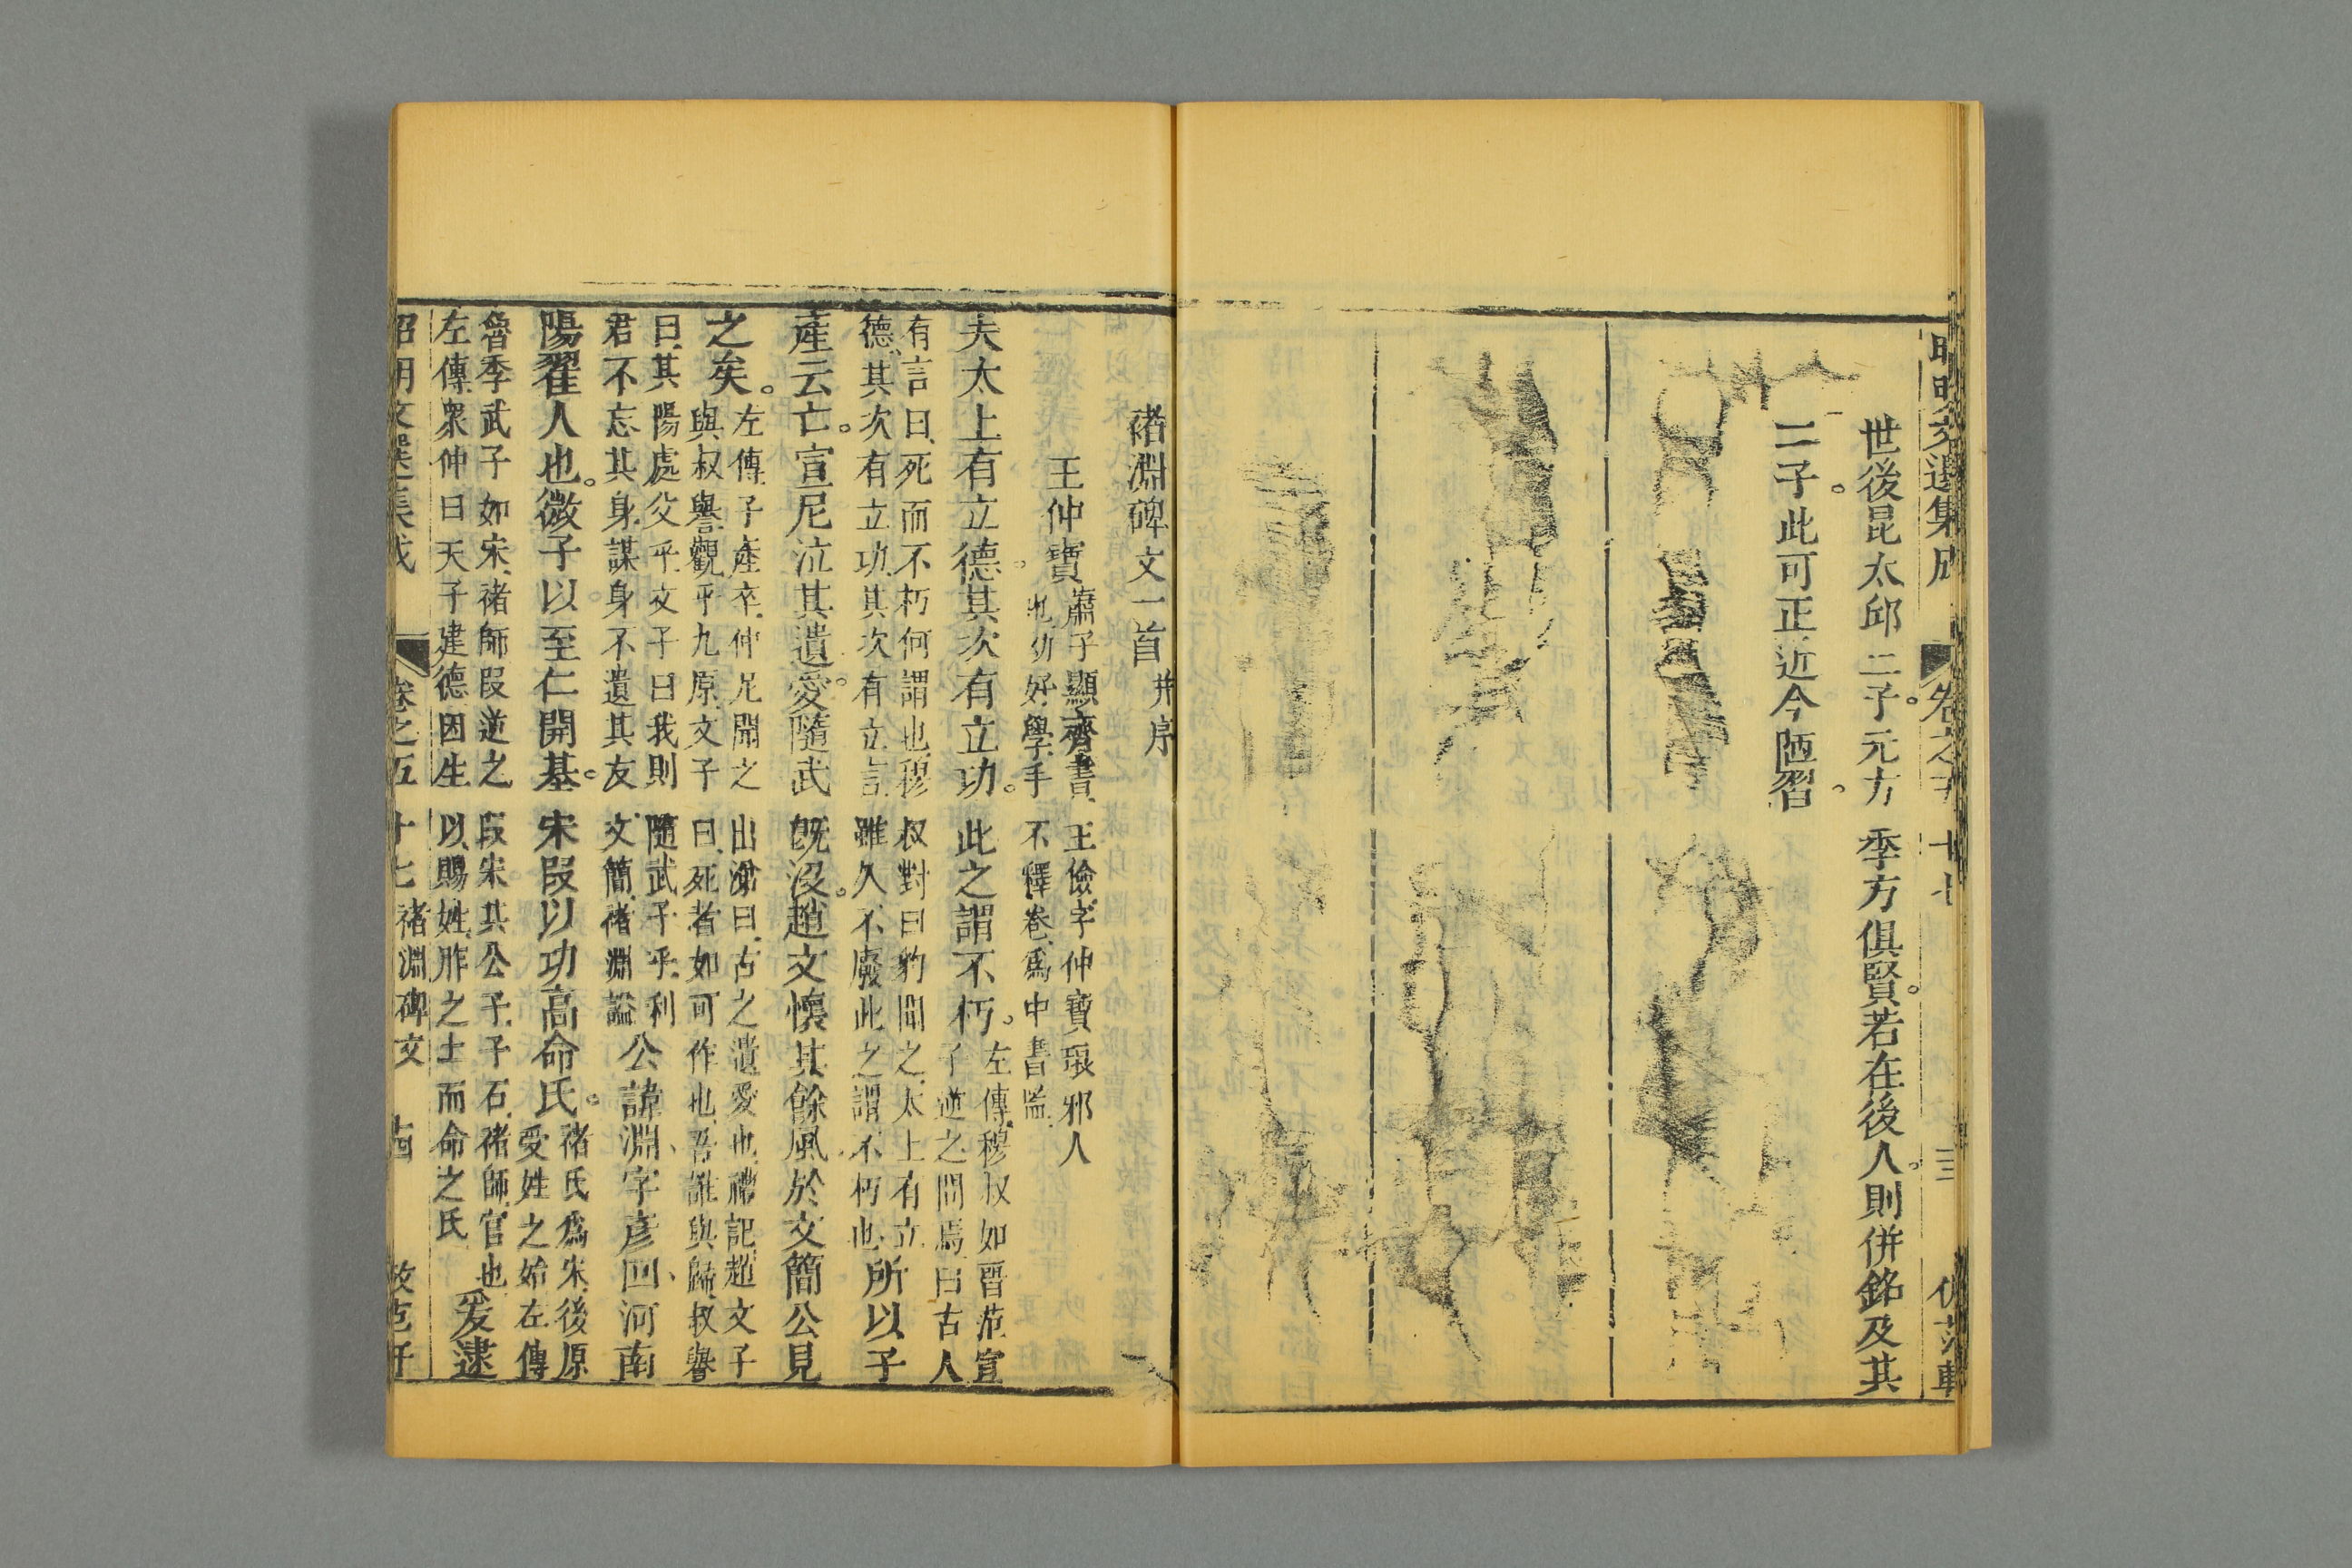 昭明文選集成 卷之五十七 三 仿范軒
世後昆太邱二子元方季方俱賢若在後人則併銘及其
二子此可正近今陋習
褚淵碑文一首 并序
王仲寶 蕭子顯齊書王儉字仲寶琅邪人
也幼好學手不釋卷爲中書監
夫太上有立德其次有立功此之謂不朽 左傳穆叔如晉范宣
子逆之問焉曰古人
有言曰死而不朽何謂也穆叔對曰豹聞之太上有立
德其次有立功其次有立言雖久不廢此之謂不朽也 所以子
產云亡宣尼泣其遺愛隨武旣沒趙文懷其餘風於文簡公見
之矣 左傳子產卒仲尼聞之出涕曰古之遺愛也禮記趙文子
與叔譽觀乎九原文子曰死者如可作也吾誰與歸叔譽
曰其陽處父乎文子曰我則隨武子乎利
君不忘其身謀身不遺其友文簡褚淵謚 公諱淵字彥回河南
陽翟人也微子以至仁開基宋段以功高命氏 褚氏爲宋後原
受姓之始左傳
魯季武子如宋褚師段逆之段宋共公子子石褚師官也
左傳衆仲曰天子建德因生以賜姓胙之土而命之氏 爰逮
昭明文選集成 卷之五十七 褚淵碑文 仿范軒